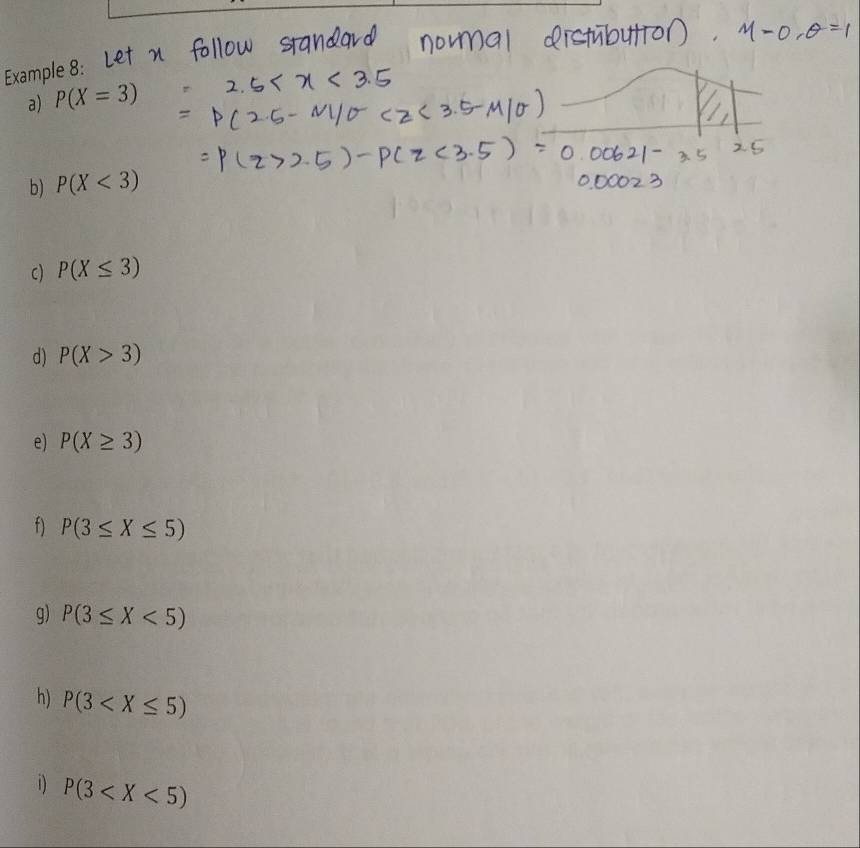 Example 8: Let x follow standard normal distribution. M-0, θ=1
a) P(X = 3) = 2.5 < x < 3.5
= P(2.5 - M/σ < z < 3.5 - M/σ)
= P(z>2.5) - P(z<3.5) = 0.00621 - 3.5 2.5
0.00023
b) P(X < 3)
c) P(X ≤ 3)
d) P(X > 3)
e) P(X ≥ 3)
f) P(3 ≤ X ≤ 5)
g) P(3 ≤ X < 5)
h) P(3 < X ≤ 5)
i) P(3 < X < 5)